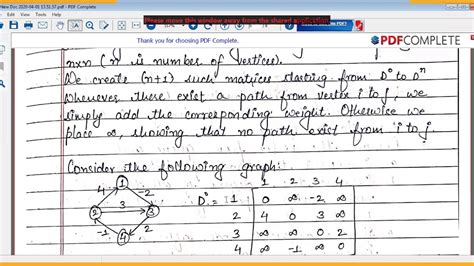 New Doc 2020-04-01 13.51.37.pdf - PDF Complete
Please move this window away from the shared application
Thank you for choosing PDF Complete.
PDFCOMPLETE
nxn (n is number of vertices).
We create (n+1) such matices starting from D° to Dⁿ
Whenever there exist a path from vertex i to j, we
simply add the corresponding weight. Otherwise we
place ∞, showing that no path exist from i to j
Consider the following graph:
1 2 3 4
4 1 -2
D° = 1 0 ∞ -2 ∞
2 3 3
2 4 0 3 ∞
3 ∞ ∞ 0 2
-1 4 2
4 ∞ -1 ∞ 0